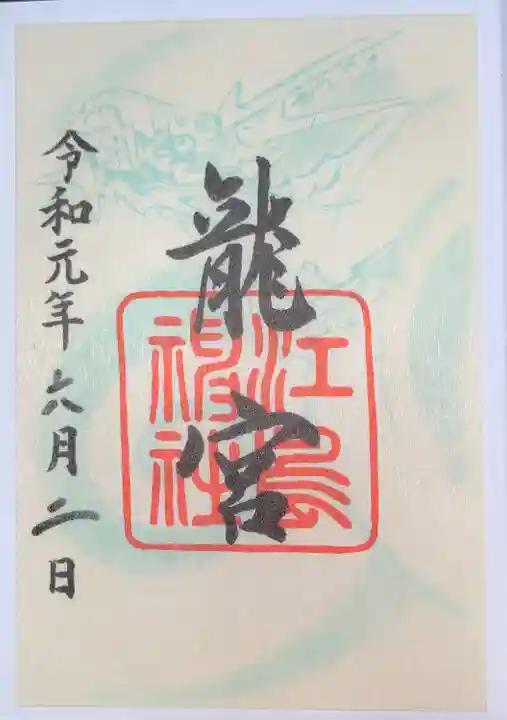 龍宮
江島神社
令和元年六月二日